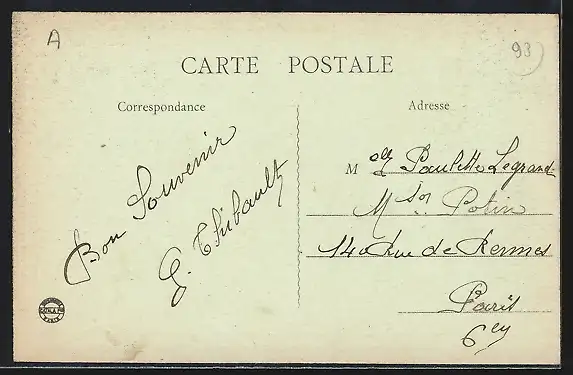 A
93
CARTE POSTALE
Correspondance
Adresse
Bon Souvenir
G. Thibault
Melle Paulette Legrand
Mson Potin
140 Rue de Rennes
Paris
6ey